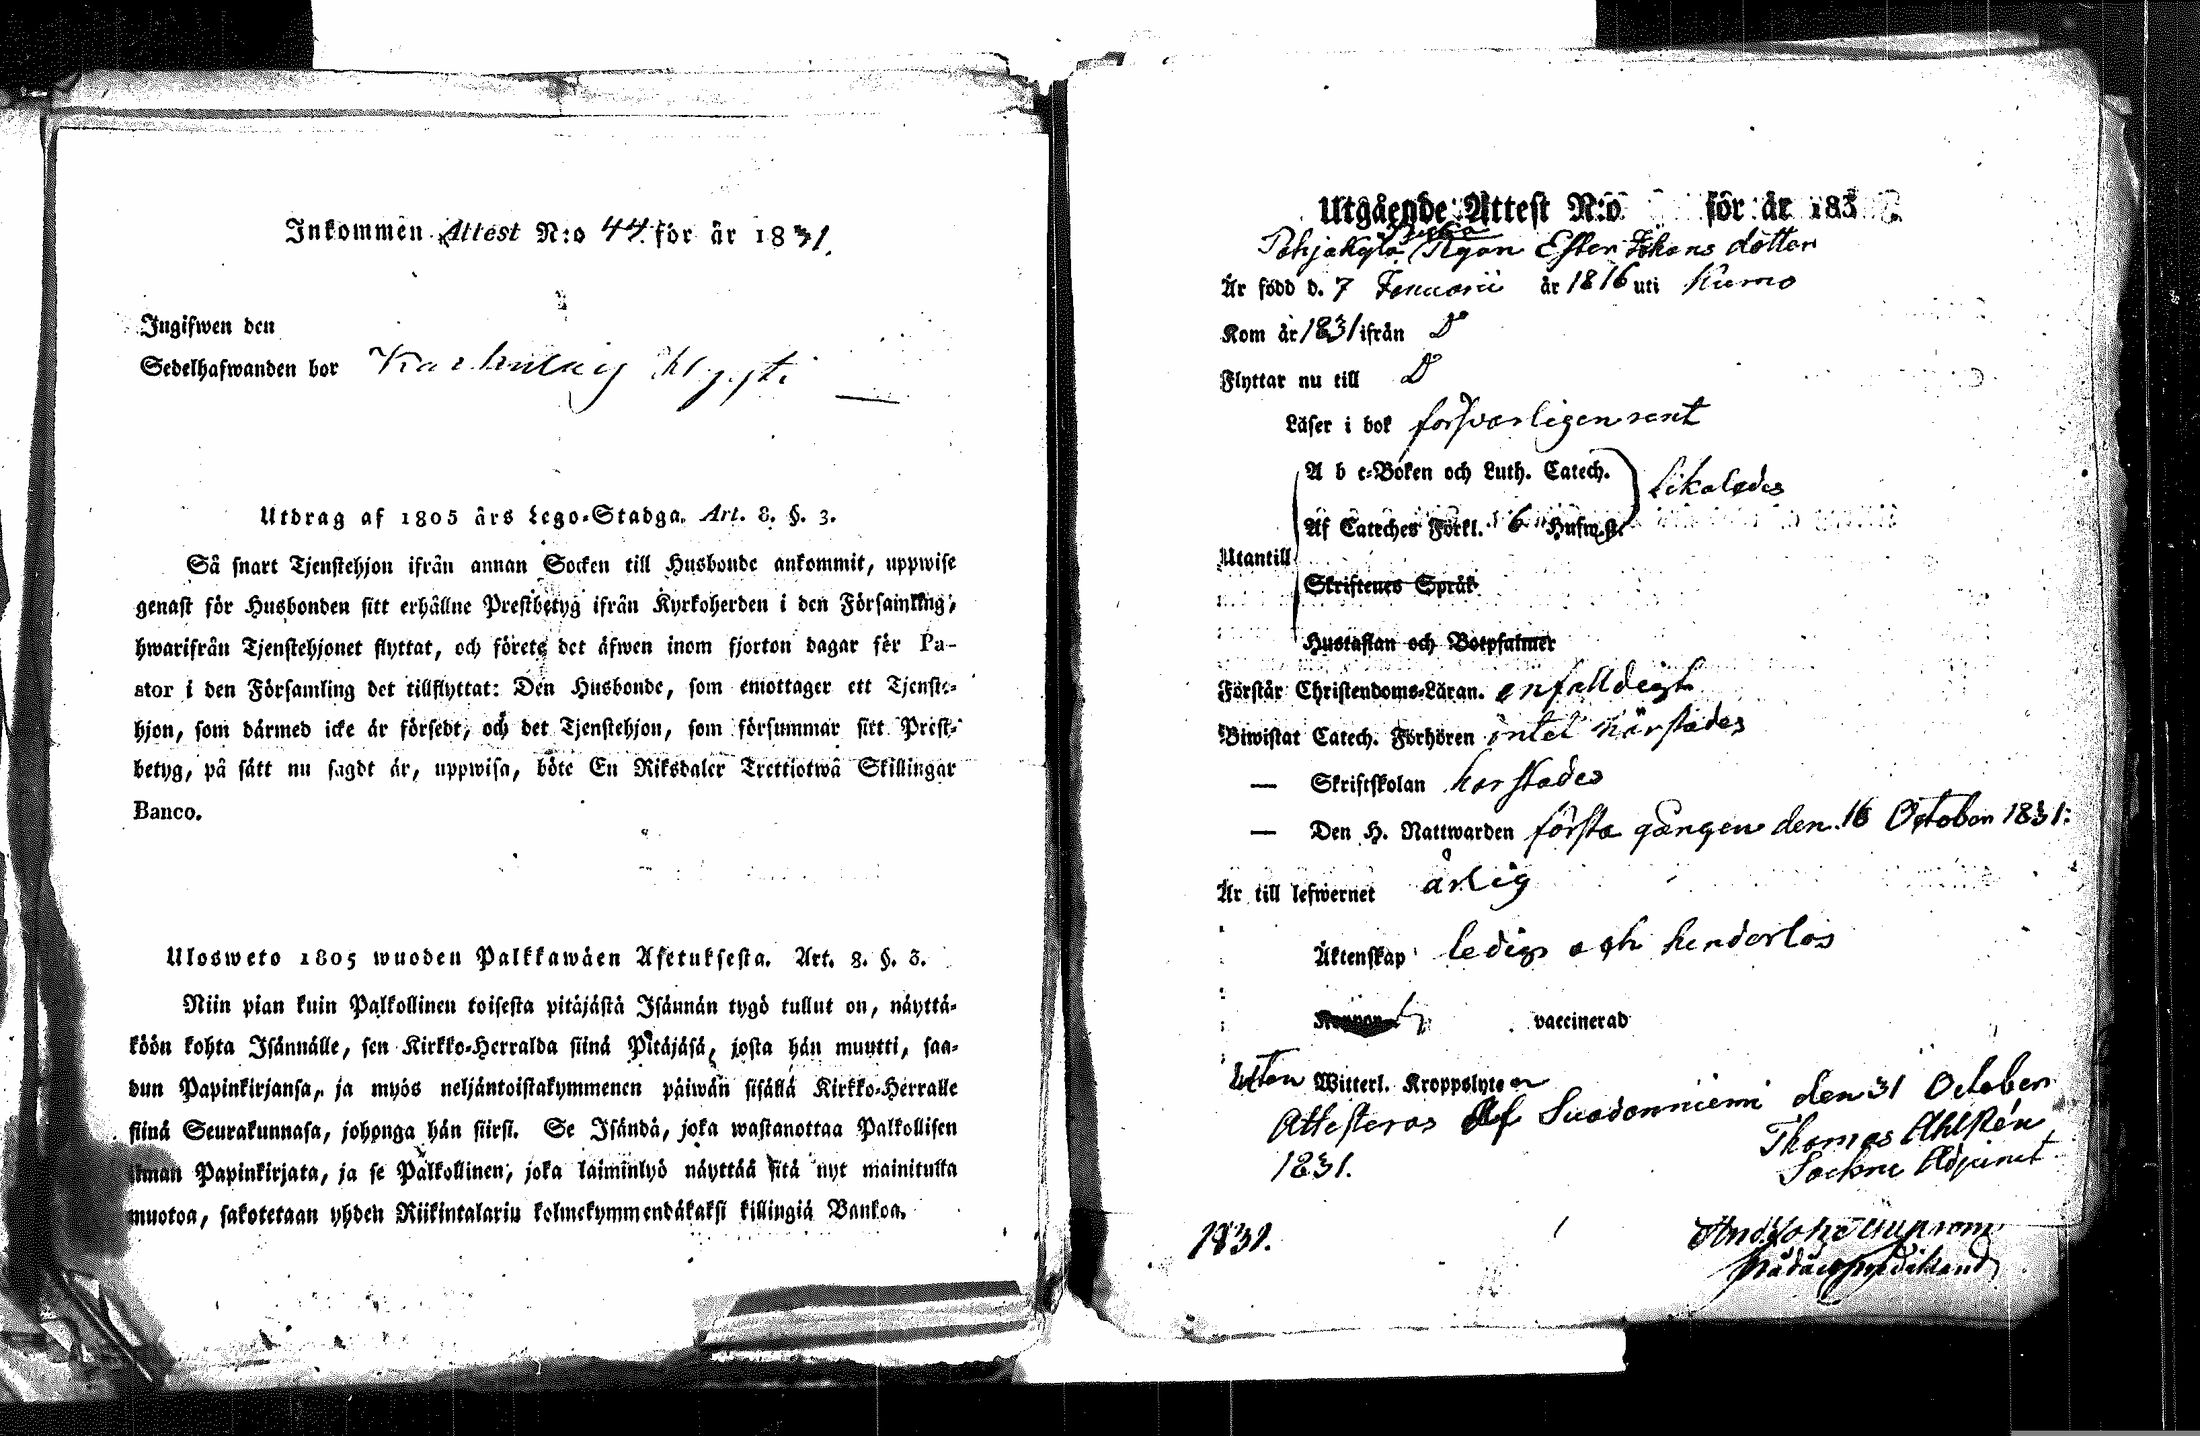 Inkommen Attest N:o 44 för år 1831.
Ingifwen den
Sedelhafwanden bor
Utdrag af 1805 års Lego-Stadga. Art. 8. §. 3.
Så snart Tjenstehjon ifrån annan Socken till Husbonde ankommit, uppwise
genast för Husbonden sitt erhållne Prestbetyg ifrån Kyrkoherden i den Församling,
hwarifrån Tjenstehjonet flyttat, och förete det äfwen inom fjorton dagar för Pa-
stor i den Församling det tillflyttat: Den Husbonde, som emottager ett Tjenste-
hjon, som därmed icke är försedt, och det Tjenstehjon, som försummar sitt Prest-
betyg, på sätt nu sagdt är, uppwisa, böte En Riksdaler Trettiotwå Skillingar
Banco.
Ulosweto 1805 wuoden Palkkawäen Asetuksesta. Art. 8. §. 3.
Niin pian kuin Palkollinen toisesta pitäjästä Isännän tygö tullut on, näyttä-
köön kohta Isännälle, sen Kirkko-Herralda siinä Pitäjäsä, josta hän muutti, saa-
dun Papinkirjansa, ja myös neljäntoistakymmenen päiwän sisällä Kirkko-Herralle
siinä Seurakunnasa, johonga hän siirsi. Se Isändä, joka wastanottaa Palkollisen
ilman Papinkirjata, ja se Palkollinen, joka laiminlyö näyttää sitä nyt mainitulla
muotoa, sakotetaan yhden Riikintalarin kolmekymmendäkaksi killingiä Bankoa.
Utgående Attest N:o för år 183
Pohjakylä Pigan Ester Johans dotter
Är född d. 7 Januarii år 1816 uti Kumo
Kom år 1831 ifrån D
Flyttar nu till D
Läser i bok försvarligen rent
A b c-Boken och Luth. Catech. likaledes
Af Cateches Förkl. 6 Hufw.st.
Utantill
Skriftenes Språk
Hustaflan och Botpsalmer
Förstår Christendoms-Läran. enfalldigt
Biwistat Catech. Förhören intet härstädes
— Skriftskolan härstädes
— Den H. Nattwarden första gången den 16 October 1831.
Är till lefwernet ärlig
Äktenskap ledig och hinderlös
vaccinerad
Utan Witterl. Kroppslyte
Attesteras af Suodenniemi den 31 October
1831. Thomas Ahlstén
Sockne Adjunct
1831.